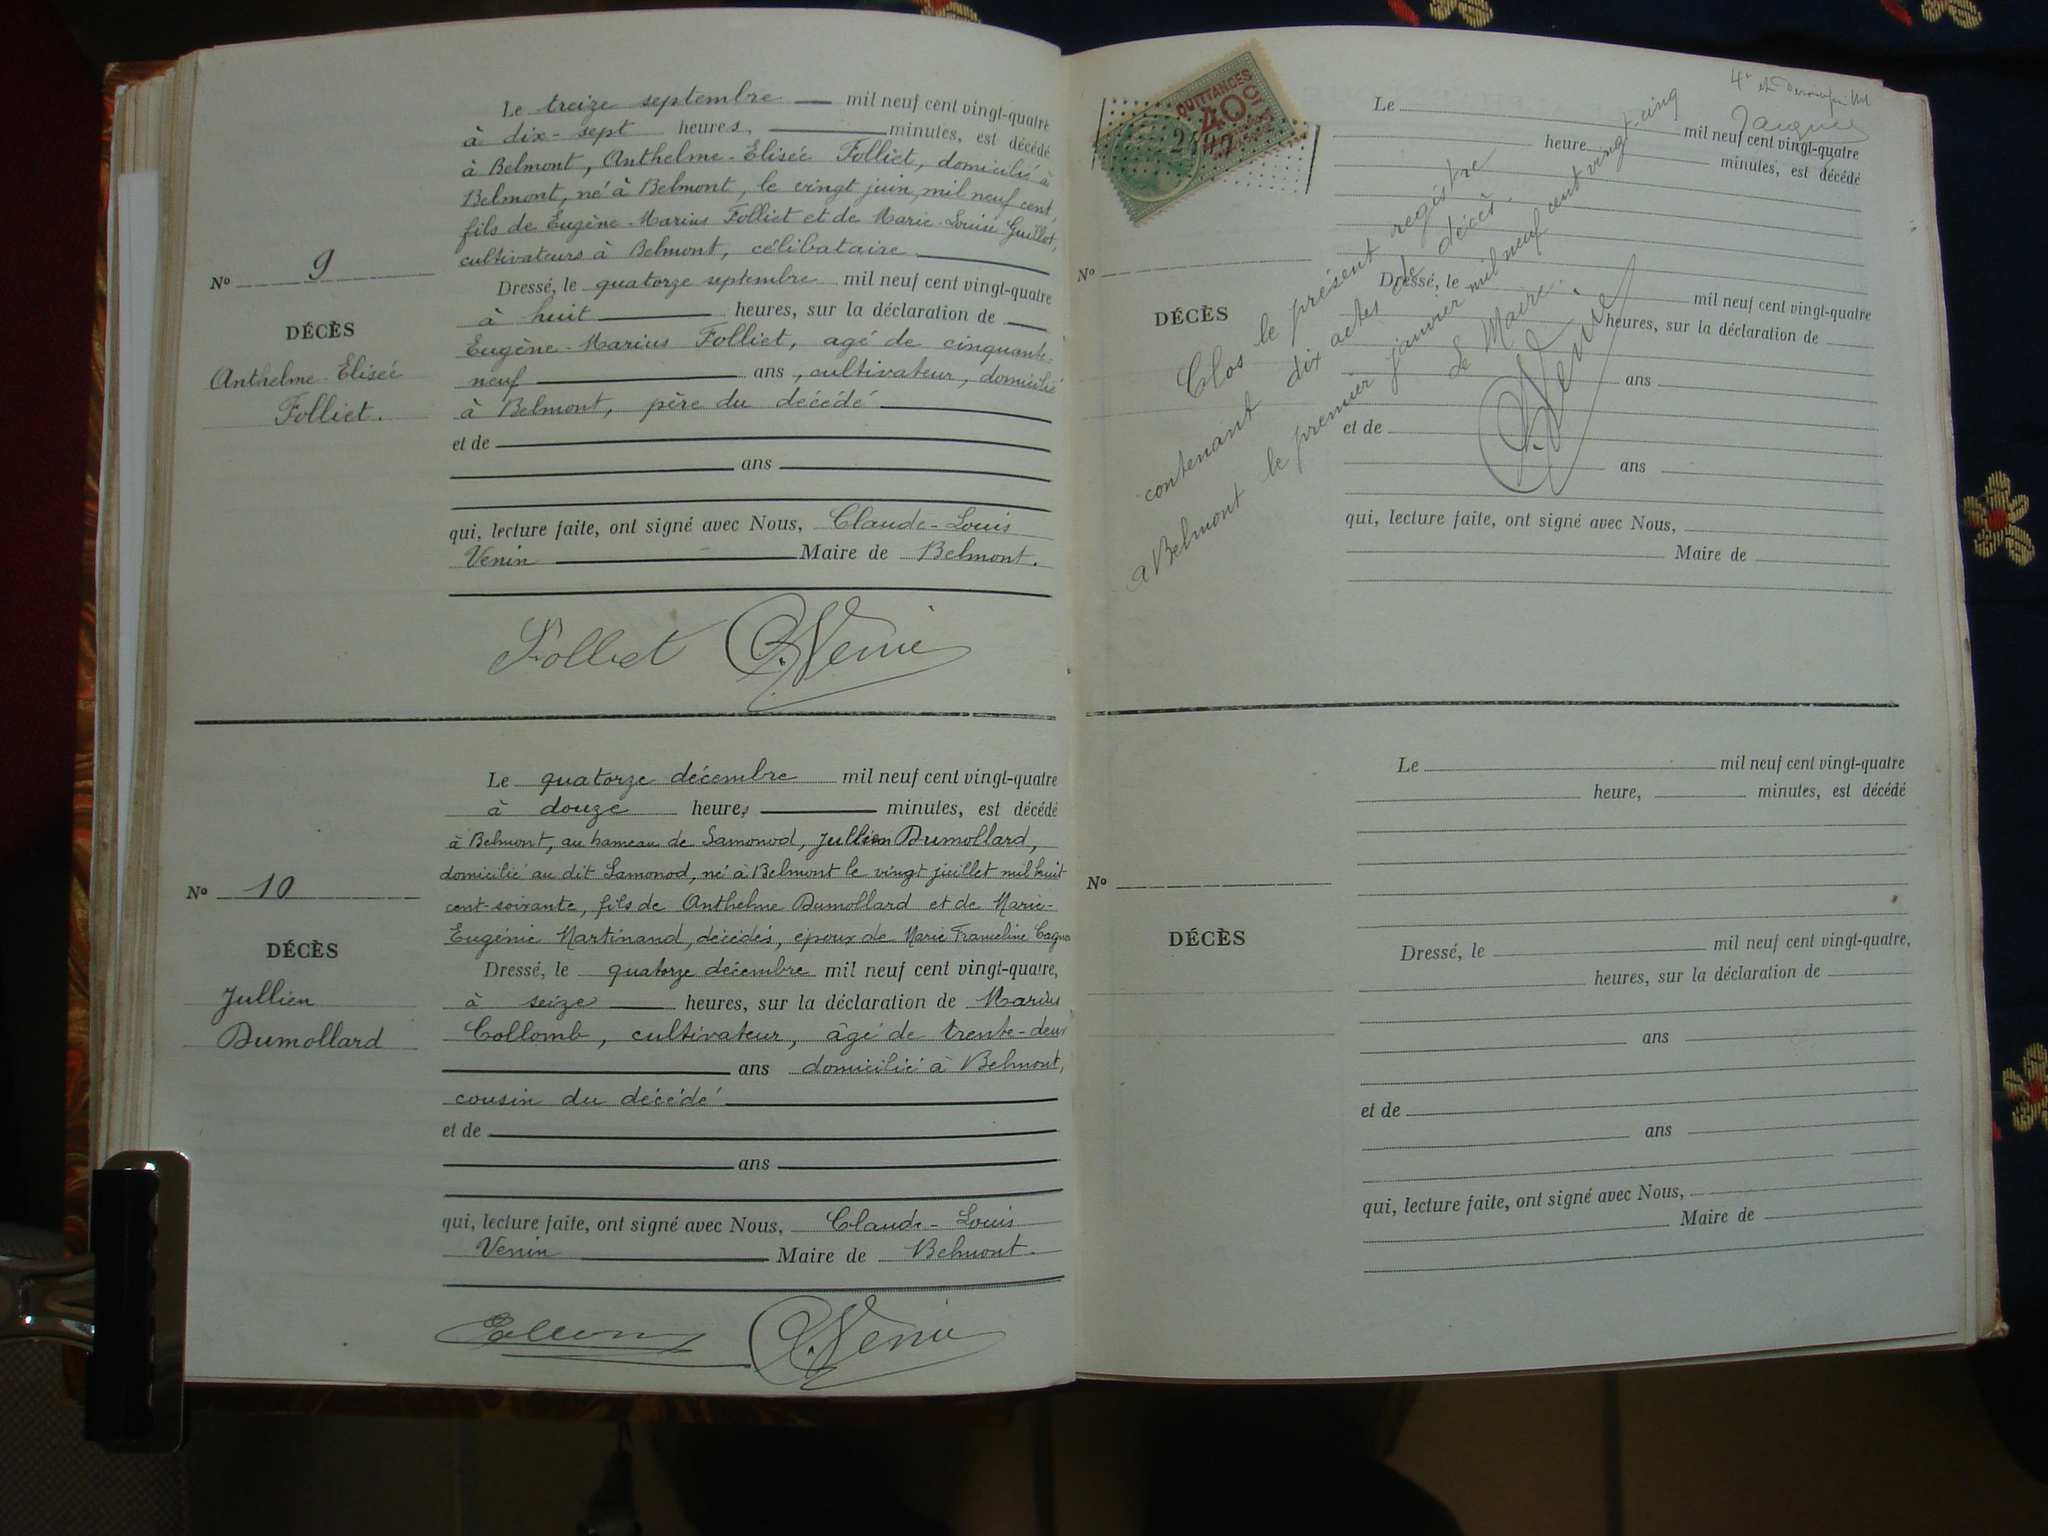 Le treize septembre mil neuf cent vingt-quatre
à dix-sept heures, minutes, est décédé
à Belmont, Anthelme-Elisée Folliet, domicilié à
Belmont, né à Belmont, le vingt juin, mil neuf cent,
fils de Eugène-Marius Folliet et de Marie-Louise Guillot,
cultivateurs à Belmont, célibataire
No 9
DÉCÈS
Anthelme-Elisée
Folliet.
Dressé, le quatorze septembre mil neuf cent vingt-quatre
à huit heures, sur la déclaration de
Eugène-Marius Folliet, agé de cinquante-
neuf ans, cultivateur, domicilié
à Belmont, père du décédé
et de
ans
qui, lecture faite, ont signé avec Nous, Claude-Louis
Venin Maire de Belmont.
Folliet C. Venin
Le quatorze décembre mil neuf cent vingt-quatre
à douze heures minutes, est décédé
à Belmont, au hameau de Samonod, Jullien Dumollard,
domicilié au dit Samonod, né à Belmont le vingt juillet mil huit
cent-soixante, fils de Anthelme Dumollard et de Marie-
Eugénie Martinand, décédés, époux de Marie Franceline
No 10
DÉCÈS
Jullien
Dumollard
Dressé, le quatorze décembre mil neuf cent vingt-quatre,
à seize heures, sur la déclaration de Marius
Collomb, cultivateur, âgé de trente-deux
ans domicilié à Belmont,
cousin du décédé
et de
ans
qui, lecture faite, ont signé avec Nous, Claude-Louis
Venin Maire de Belmont.
C. Venin
QUITTANCES
40c
Jacques
Le mil neuf cent vingt-quatre
heure minutes, est décédé
No
DÉCÈS
Dressé, le mil neuf cent vingt-quatre
heures, sur la déclaration de
ans
et de
ans
qui, lecture faite, ont signé avec Nous,
Maire de
Clos le présent registre
contenant dix actes de décès.
à Belmont le premier janvier mil neuf cent vingt-cinq
Le Maire.
C. Venin
Le mil neuf cent vingt-quatre
heure, minutes, est décédé
No
DÉCÈS
Dressé, le mil neuf cent vingt-quatre,
heures, sur la déclaration de
ans
et de
ans
qui, lecture faite, ont signé avec Nous,
Maire de